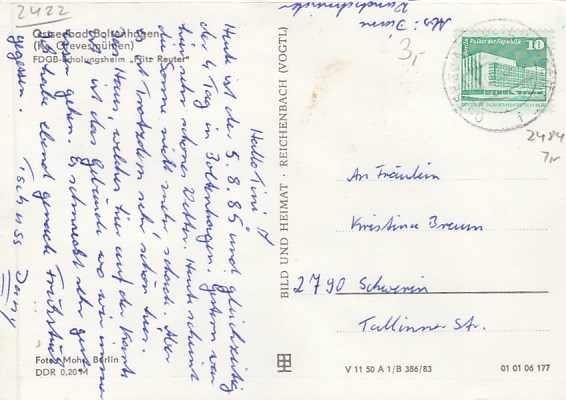 2422
Ostseebad Boltenhagen
(Kr. Grevesmühlen)
FDGB-Erholungsheim „Fritz Reuter"
Hallo Tini!
Heute ist der 5.8.85 und gleichzeitig
der 4 Tag in Boltenhagen. Gestern war
hier sehr schönes Wetter. Heute scheint
die Sonne nicht mehr, schade. Aber
es ist trotzdem sehr schön hier.
Das Haus, welches hier auf der Karte
ist, ist das Gebäude wo wir immer
essen gehen. Es schmeckt sehr gut.
Ich habe ebend gerade Frühstück
gegessen. Tschüss Dany
Foto: Mohr, Berlin
DDR 0,20 M
BILD UND HEIMAT · REICHENBACH (VOGTL)
Abs:
3,-
Berlin, Palast der Republik
10
2484
7,-
An Fräulein
Kristina Braun
2790 Schwerin
Tallinner Str.
V 11 50 A 1/B 386/83
01 01 06 177